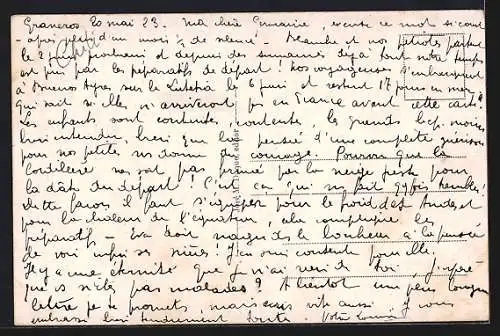 Graneros 20 mai 23. Ma chère Germaine, excuse ce mot si court
après plus d'un mois 1/2 de silence. Blanche et nos petiotes partent
le 2 juin prochain et depuis des semaines déjà tout notre temps
est pris par les préparatifs de départ! Nos voyageuses s'embarquent
à Buenos Ayres sur le Lutetia le 6 juin et restent 17 jours en mer
Qui sait si elles n'arriveront pas en France avant cette carte!
Les enfants sont contentes, contentes, les grands bcp. moins
bien entendu, bien que la pensée d'une complète guérison
pour nos petites nous donne du courage. Pourvu que la
Cordillère ne soit pas prise par la neige juste pour
la date du départ! C'est ça qui nous fait gde peur
De cette façon il faut s'équiper pour le froid des Andes et
pour la chaleur de l'équateur, cela complique les
préparatifs - Eva doit maigrir de bonheur à la pensée
de voir enfin ses nièces! J'en suis contente pour elle.
Il y a une éternité que je n'ai rien de toi, j'espère
que vs n'êtes pas malades? A bientôt une plus longue
lettre je te promets, mais écris vite aussi. Je vous
embrasse bien tendrement toute. Votre